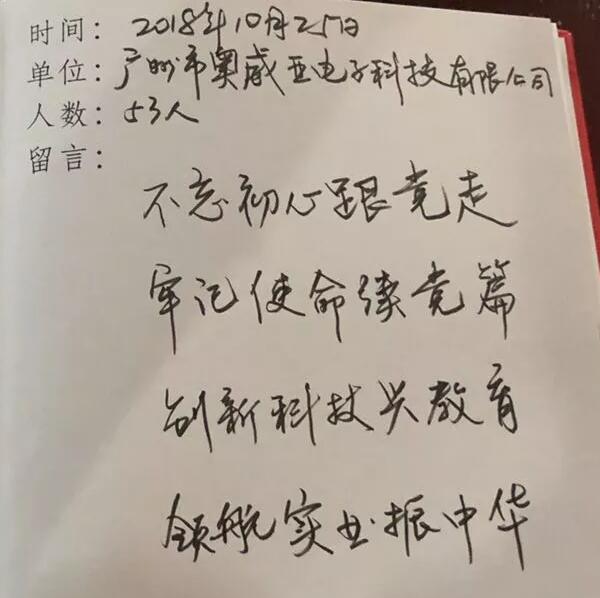 时间：2018年10月25日
单位：广州市奥威亚电子科技有限公司
人数：53人
留言：
不忘初心跟党走
牢记使命续党篇
创新科技兴教育
领航实业振中华